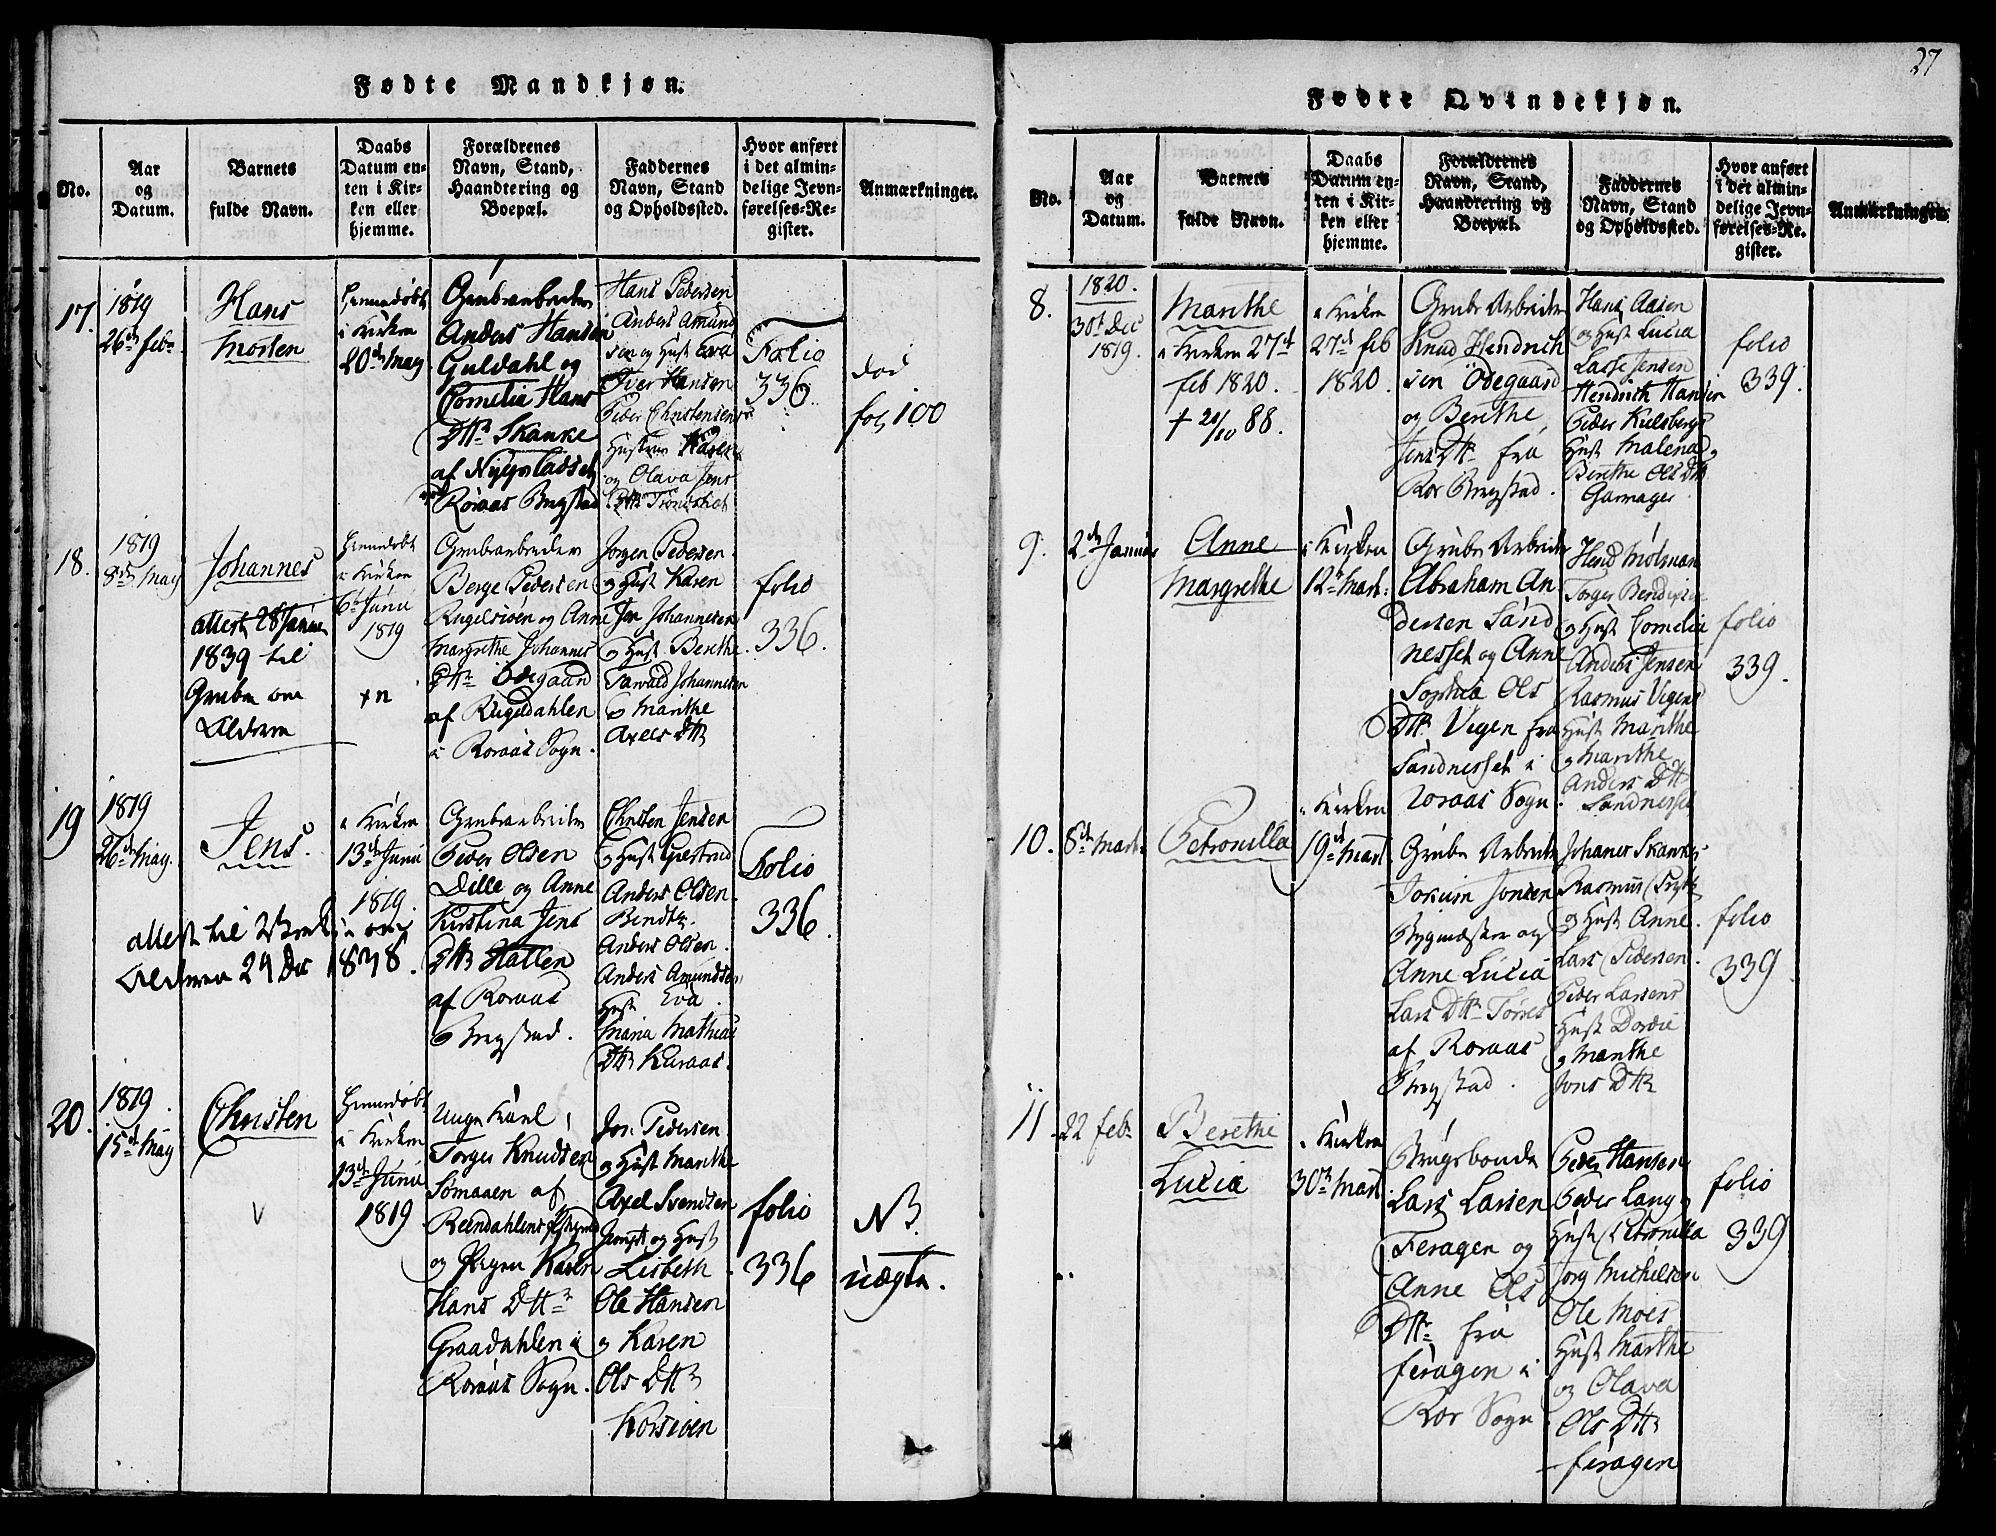 27
Fødte Mandkjøn.
No.
Aar
og
Datum.
Barnets
fulde Navn.
Daabs
Datum en-
ten i Kir-
ken eller
hjemme.
Forældrenes
Navn, Stand,
Haandtering og
Boepæl.
Faddernes
Navn, Stand
og Opholdssted.
Hvor anført
i det almin-
delige Jevn-
førelses-Re-
gister.
Anmærkninger.
17.
1819
26de febr
Hans
Morten
Hjemmedøbt
i Kirken
20de May
Grubearbeider
Anders Hansen
Guldahl og
Cornelia Hans
Dttr Skanke
af
Röraas Bergstad
Hans Pedersen
Anders Amund
sen og Hust Eva
Iver Hansen
Peder Christensens
Hustrue Karen
og Olava Jens
Dttr
Folio
336
död
fol 100
18.
1819
8de May
Johannes
attest 28 Januar
1839 til
Grube om
Alderen
Hjemmedøbt
i Kirken
6te Junii
1819
+n
Grubearbeider
Berge Pedersen
Rugelsiöen og Anne
Margrethe Johannes
Dttr Ödegaard
af Rugeldahlen
i Roraas Sogn.
Jorgen Pedersen
og Hust Karen
Jon Johannesen
og Hust Berethe
Tarvald Johannesen
og Marithe
Axels Dttr
folio
336.
19
1819
26de May.
Jens.
i Kirken
13de Junii
1819.
attest til
om
Alderen 29 Dec 1838.
Grubearbeider
Peder Olsen
Dille og Anne
Kirstina Jens
Dttr Hatten
af Roraas
Bergstad.
Christen Jensen
og Hust Giertrud
Anders Olsen
Bendtz.
Anders Olsen.
Anders Amundsen
Hust Eva.
Maria Mathias
Dttr Kuraas.
Folio
336.
20.
1819.
15de May
Christen
V
Hjemmedøbt
i Kirken
13de Junii
1819
Unge Karl
Torger Knudsen
Sömaaen af
Reendahlens
og Pigen Karen
Hans Dttr
Graadahlen i
Roraas Sogn.
Jon Pedersen
og Hust Marithe
Axel Svendsen
Jemt og Hust
Lisbeth
Ole Hansen
og Karen
Ols Dttr
Korsiöen
folio
336
NB
uægte.
Fødte Qvindekjøn.
No.
Aar
og
Datum.
Barnets
fulde Navn.
Daabs
Datum en-
ten i Kir-
ken eller
hjemme.
Forældrenes
Navn, Stand,
Haandtering og
Boepæl.
Faddernes
Navn, Stand
og Opholdssted.
Hvor anført
i det almin-
delige Jevn-
førelses-Re-
gister.
Anmærkninger.
8.
1820.
30te Dec
1819.
Marithe
i Kirken 27de
feb 1820.
+ 21/10 88.
i Kirken
27de feb
1820.
Grube Arbeider
Knud Hendrich
sen Ödegaard
og Berethe
Jens Dttr fra
Ror Bergstad.
Hans Aasen
og Hust Lucia
Lasse Jensen
Hendrich Hansen
Peder Kielsbergs
Hust Malena og
Berethe Ols Dttr
Garnager
folio
339.
9.
2de Januar
Anne
Margrethe
i Kirken
12te Mart.
Grube Arbeider
Abraham An
dersen Sand
nesset og Anne
Sophia Ols
Dttr Vigen fra
Sandnesset i
Roraas Sogn.
Hend Molman
Torger Bendixen
og Hust Cornelia
Anders Jensen
Rasmus Vigens
Hust Marithe
og Marithe
Anders Dttr
Sandnesset
folio
339.
10.
8de Mart.
Petronilla
i Kirken
19de Mart
Grube Arbeider
Joruim Jonsen
Bygmæster og
Anne Lucia
Lars Dttr Torres
af Roraas
Bergstad.
Johanes Skanke
Rasmus Prytz
og Hust Anne.
Lars Pedersen.
Peder Larsens
Hust Dordie
og Marithe
Jons Dttr
folio
339.
11.
22 feb
Berethe
Lucia
i Kirken
30te Mart
Brugsbonde
Lars Larsen
Feragen og
Anne Ols
Dttr fra
feragen i
Ror Sogn
Peder Hansen
Peder Lang og
Hust Petronilla
Jorg Michelsen
Ole Moes
Hust Marthe
og Olava
Ols Dttr
feragen
folio
339